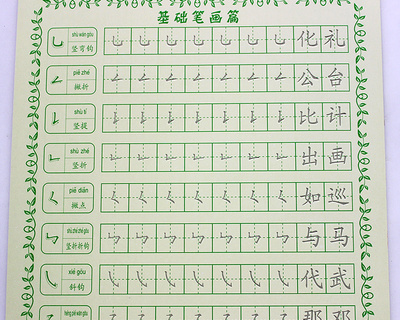 基础笔画篇
shù wān gōu
竖弯钩 乚 乚 乚 乚 乚 乚 乚 乚 化 礼
piě zhé
撇折 𠃋 𠃋 𠃋 𠃋 𠃋 𠃋 𠃋 𠃋 公 台
shù tí
竖提 𠄌 𠄌 𠄌 𠄌 𠄌 𠄌 𠄌 𠄌 比 计
shù zhé
竖折 𠃊 𠃊 𠃊 𠃊 𠃊 𠃊 𠃊 𠃊 出 画
piě diǎn
撇点 𡿨 𡿨 𡿨 𡿨 𡿨 𡿨 𡿨 𡿨 如 巡
shù zhé zhé gōu
竖折折钩 ㇉ ㇉ ㇉ ㇉ ㇉ ㇉ ㇉ ㇉ 与 马
xié gōu
斜钩 ㇂ ㇂ ㇂ ㇂ ㇂ ㇂ ㇂ ㇂ 代 武
héng piě wān gōu
那 邓